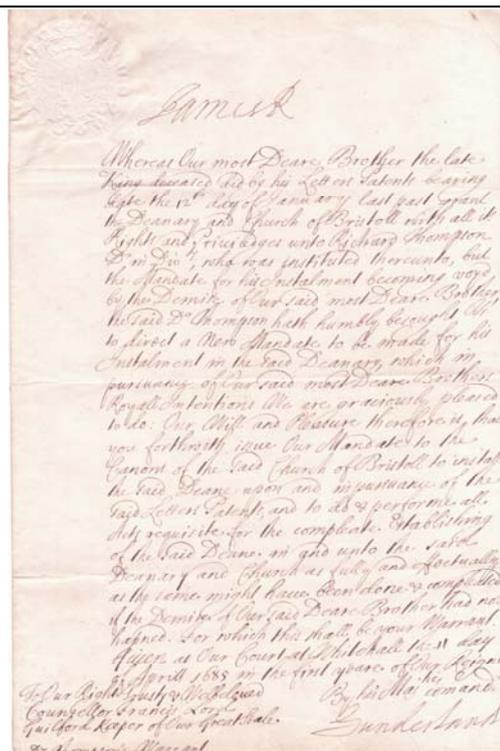 James R
Whereas Our most Deare Brother the late
King deceased did by his Letters Patents bearing
date the 12th day of January last past grant
the Deanary and Church of Bristoll with all it
Rights and Priviledges unto Richard Thompson
Dr in Divty, who was instituted thereunto, but
the Mandate for his Instalment becoming voyd
by the Demise of Our said most Deare Brother
the said Dr Thompson hath humbly besought Us
to direct a New Mandate to be made for his
Instalment in the said Deanary, which in
pursuance of Our said most Deare Brothers
Royall Intentions We are graciously pleased
to do; Our Will and Pleasure therefore is, that
you forthwith issue Our Mandate to the
Canons of the said Church of Bristoll to install
the said Deane upon and in pursuance of the
said Letters Patents, and to do & performe all
Acts requisite for the compleate Establishing
of the said Deane in and unto the said
Deanary and Church as fully and effectually
as the same might have been done & compleated
if the Demise of Our said Deare Brother had not
hapned. For which this shall be your Warrant
Given at Our Court at Whitehall the 11 day
of April 1685 in the first yeare of Our Reigne
By his Maties comand
To Our Right Trusty & Welbeloved
Counsellor Francis Lord
Guilford Keeper of Our Great Seale.
Sunderland
Dr Thompson's Warrant